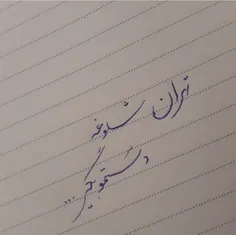 تهران شلوغه
دستمو بگیر...